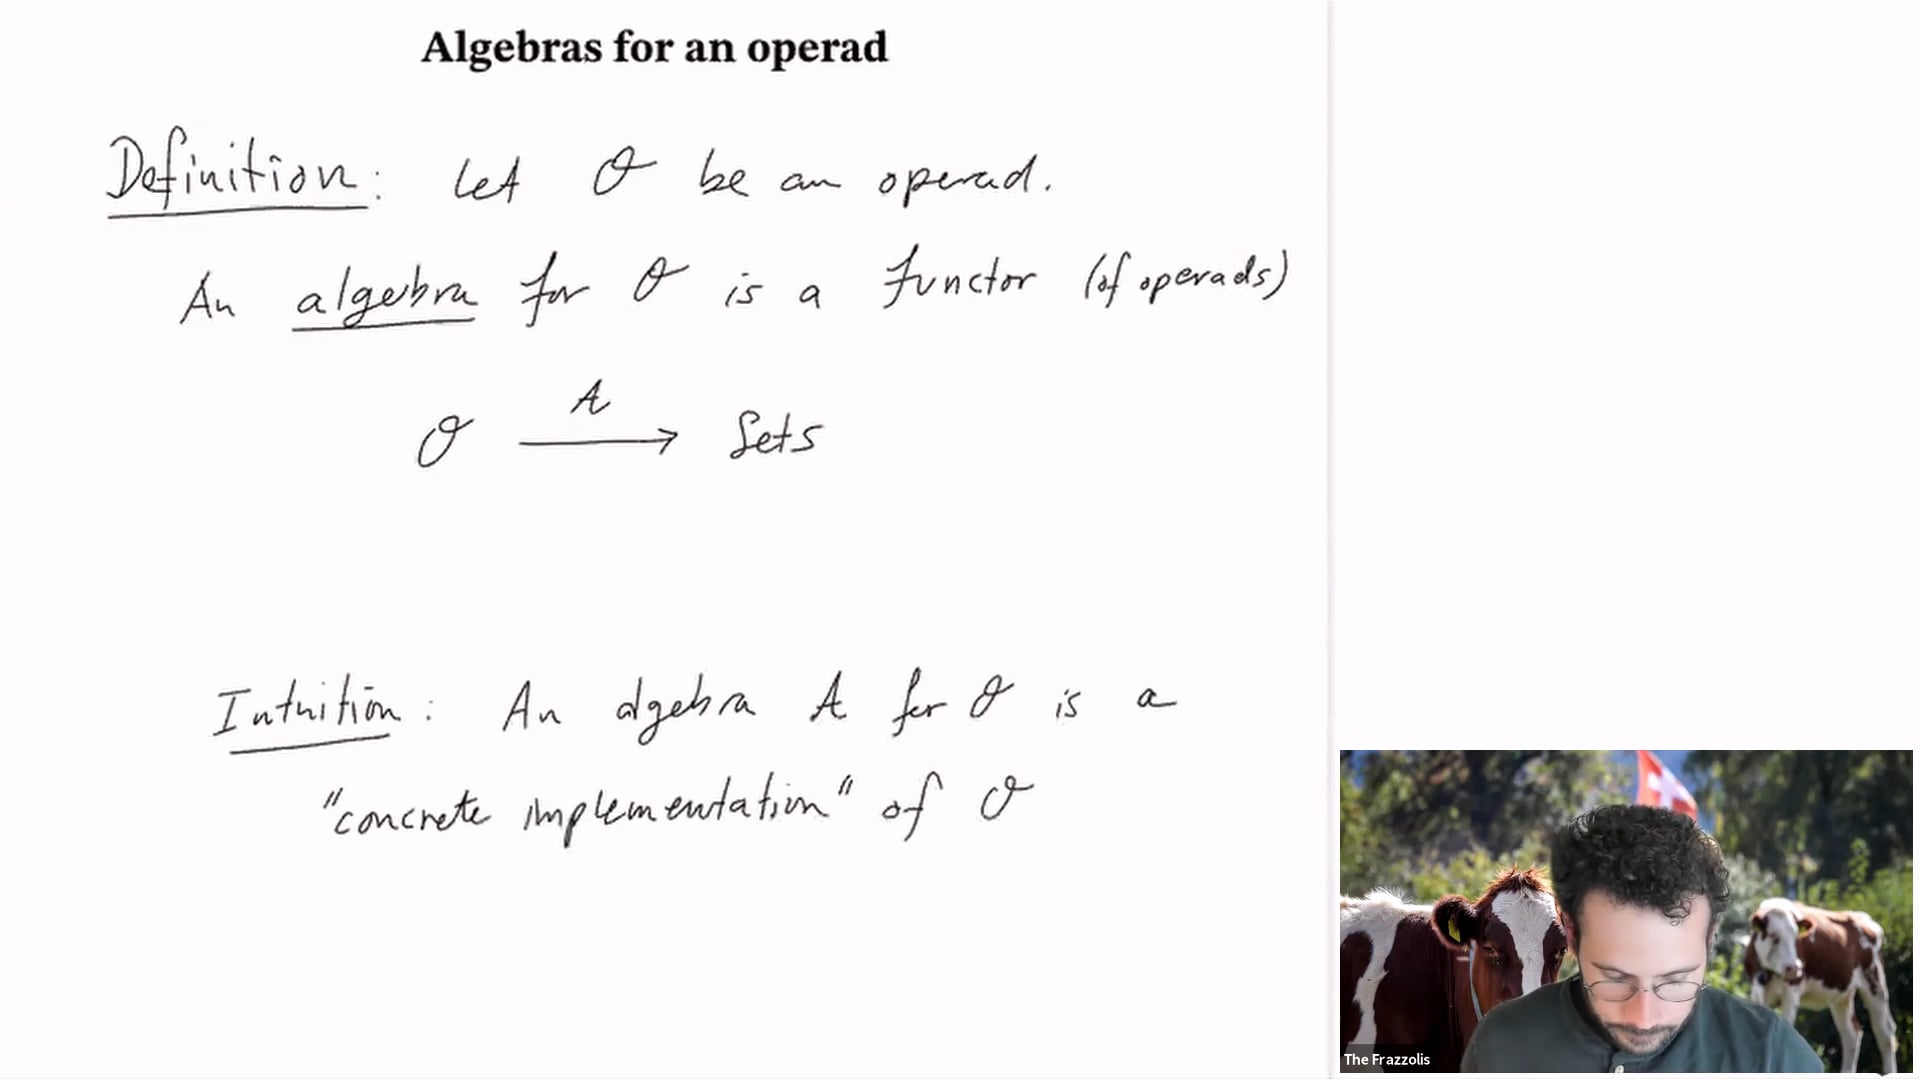 Algebras for an operad
Definition: Let O be an operad.
An algebra for O is a functor (of operads)
A
O → Sets
Intuition: An algebra A for O is a
"concrete implementation" of O
The Frazzolis